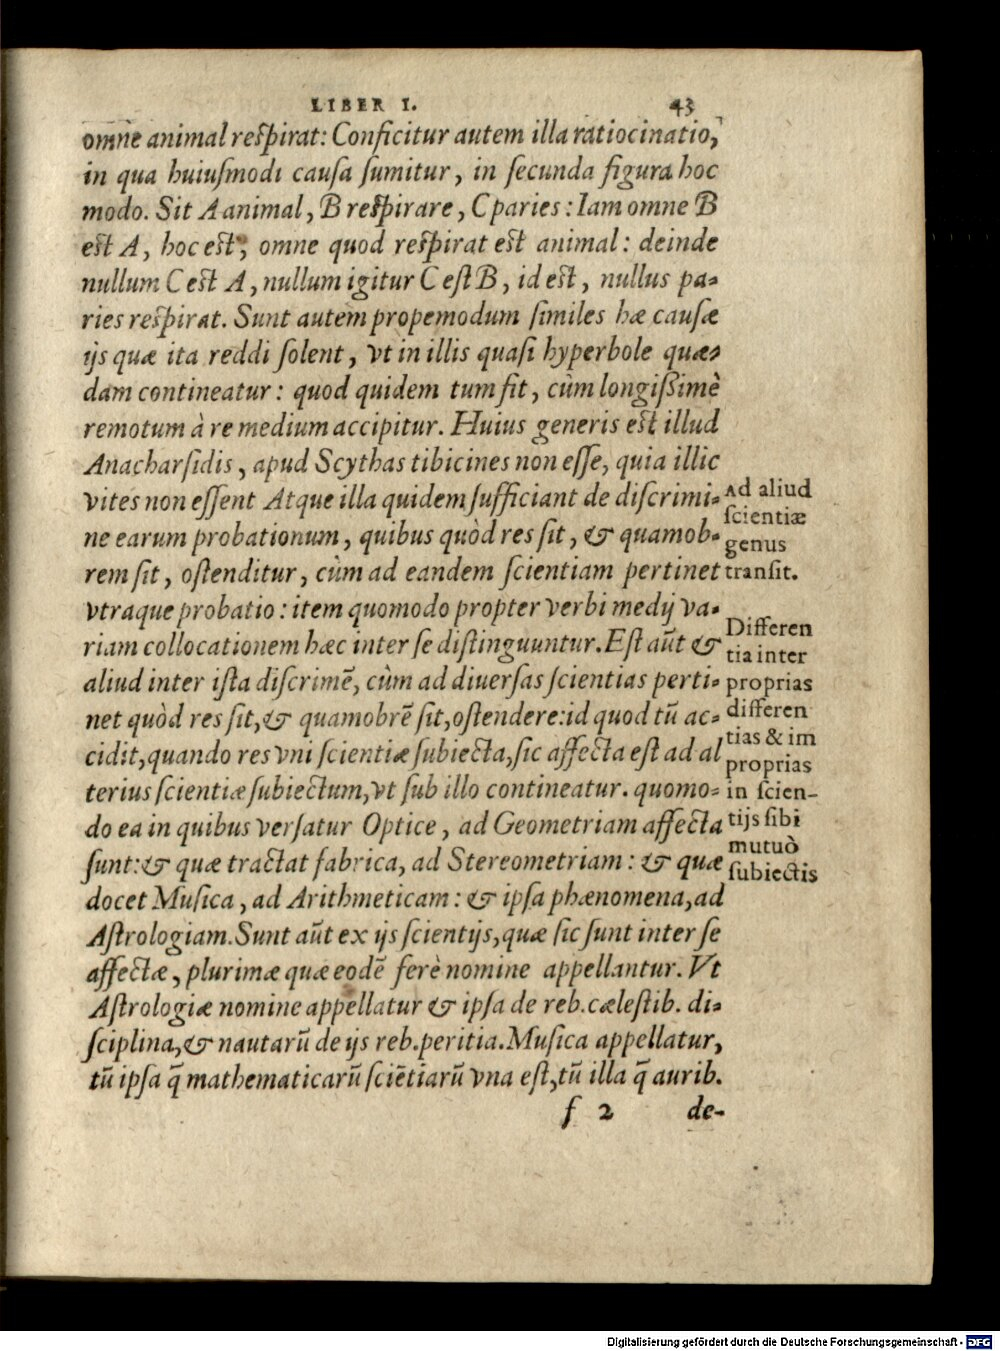 LIBER I. 43
omne animal respirat: Conficitur autem illa ratiocinatio,
in qua huiuſmodi cauſa ſumitur, in ſecunda figura hoc
modo. Sit A animal, B reſpirare, C paries: Iam omne B
est A, hoc est, omne quod reſpirat est animal: deinde
nullum C est A, nullum igitur C eſt B, id est, nullus pa-
ries reſpirat. Sunt autem propemodum ſimiles hæ cauſæ
ijs quæ ita reddi ſolent, vt in illis quaſi hyperbole quæ-
dam contineatur: quod quidem tum fit, cùm longiſsimè
remotum à re medium accipitur. Huius generis est illud
Anacharſidis, apud Scythas tibicines non eſſe, quia illic
vites non eſſent Atque illa quidem ſufficiant de diſcrimi-
ne earum probationum, quibus quòd res ſit, & quamob-
rem ſit, oſtenditur, cùm ad eandem ſcientiam pertinet
vtraque probatio: item quomodo propter verbi medij va-
riam collocationem hæc inter ſe diſtinguuntur. Eſt aūt &
aliud inter iſta diſcrimē, cùm ad diuerſas ſcientias perti-
net quòd res ſit, & quamobrē ſit, oſtendere: id quod tū ac-
cidit, quando res vni ſcientiæ ſubiecta, ſic affecta eſt ad al
terius ſcientiæ ſubiectum, vt ſub illo contineatur. quomo-
do ea in quibus verſatur Optice, ad Geometriam affecta
ſunt: & quæ tractat fabrica, ad Stereometriam: & quæ
docet Muſica, ad Arithmeticam: & ipſa phænomena, ad
Aſtrologiam. Sunt aūt ex ijs ſcientijs, quæ ſic ſunt inter ſe
affectæ, plurimæ quæ eodē ferè nomine appellantur. Vt
Aſtrologiæ nomine appellatur & ipſa de reb. cæleſtib. di-
ſciplina, & nautarū de ijs reb. peritia. Muſica appellatur,
tū ipſa q̄ mathematicarū ſciētiarū vna eſt, tū illa q̄ aurib.
f 2 de-
Ad aliud
ſcientiæ
genus
tranſit.
Differen
tia inter
proprias
differen
tias & im
proprias
in ſcien-
tijs ſibi
mutuò
ſubiectis
Digitalisierung gefördert durch die Deutsche Forschungsgemeinschaft - DFG